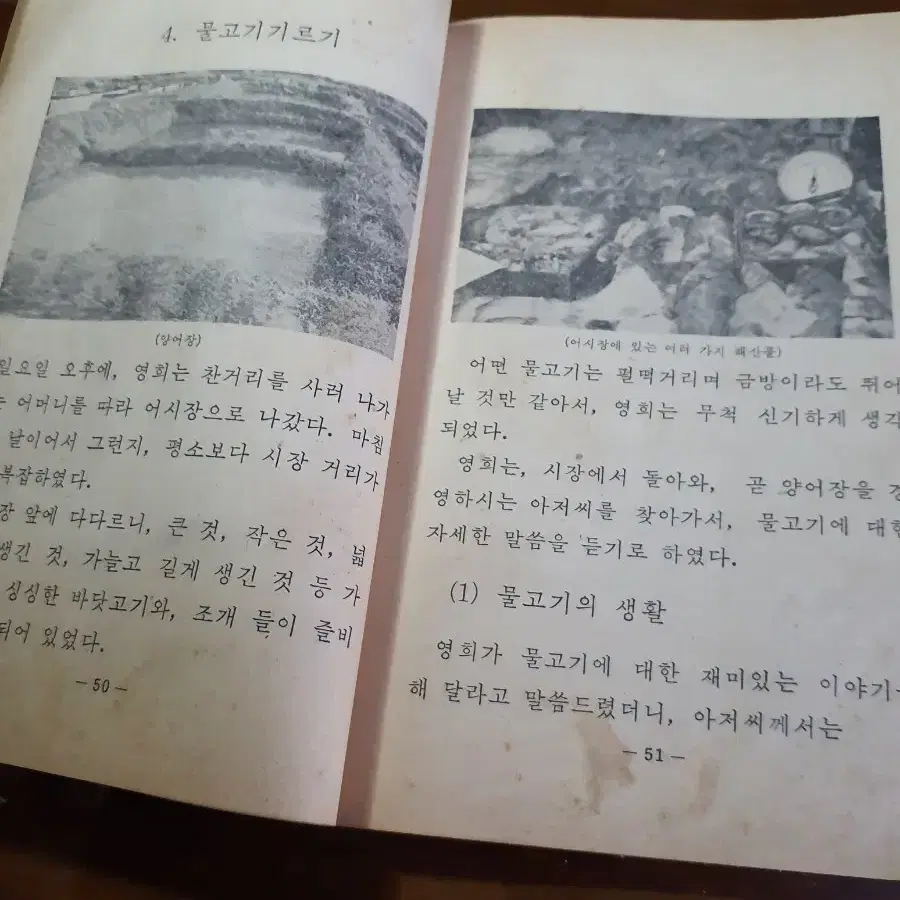 4. 물고기기르기
(양어장)
일요일 오후에, 영희는 찬거리를 사러 나가
는 어머니를 따라 어시장으로 나갔다. 마침
날이어서 그런지, 평소보다 시장 거리가
복잡하였다.
장 앞에 다다르니, 큰 것, 작은 것, 넓
생긴 것, 가늘고 길게 생긴 것 등 가
싱싱한 바닷고기와, 조개 들이 즐비
되어 있었다.
— 50 —
(어시장에 있는 여러 가지 해산물)
어떤 물고기는 펄떡거리며 금방이라도 뛰어
날 것만 같아서, 영희는 무척 신기하게 생각
되었다.
영희는, 시장에서 돌아와, 곧 양어장을 경
영하시는 아저씨를 찾아가서, 물고기에 대한
자세한 말씀을 듣기로 하였다.
(1) 물고기의 생활
영희가 물고기에 대한 재미있는 이야기
해 달라고 말씀드렸더니, 아저씨께서는
— 51 —